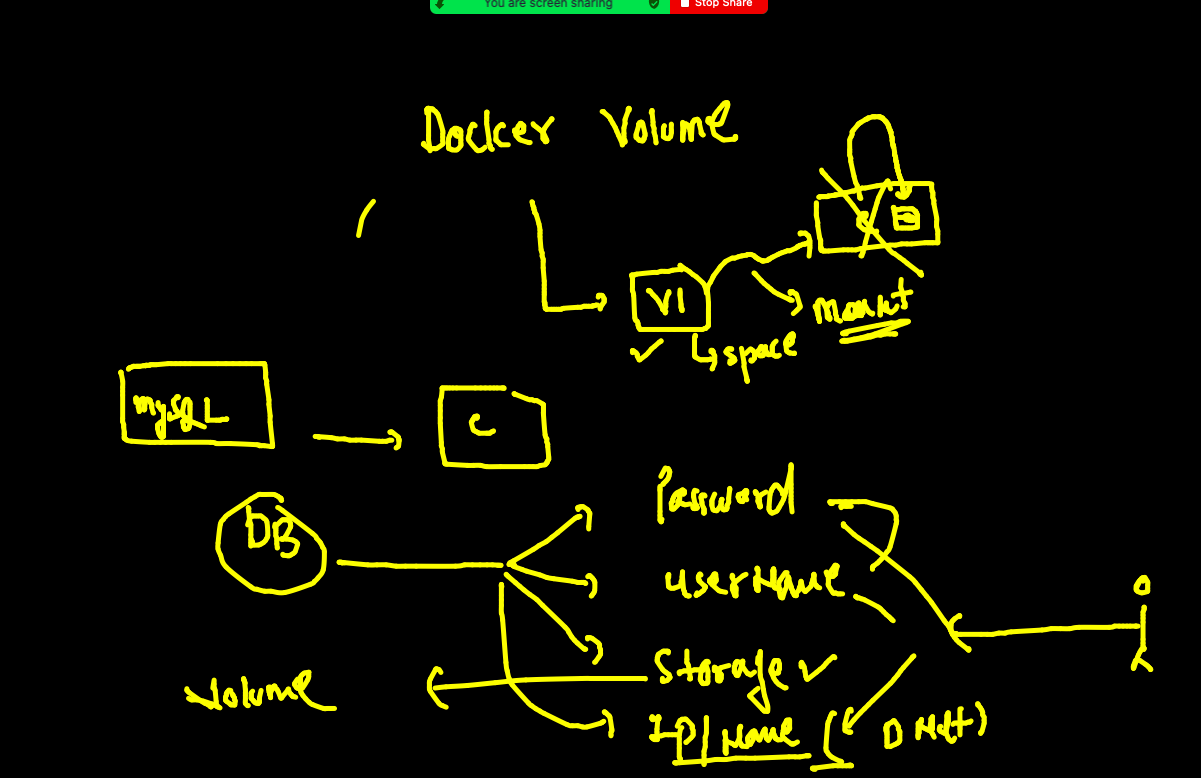 You are screen sharing Stop Share
Docker Volume
V1
mount
space
mysqL
C
Password
DB
userName
Storage
Volume
IP/Name